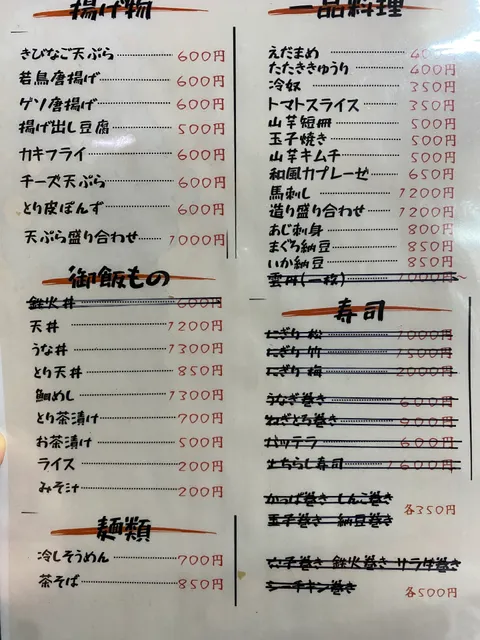 揚げ物
きびなご天ぷら 600円
若鳥唐揚げ 600円
ゲソ唐揚げ 600円
揚げ出し豆腐 500円
カキフライ 600円
チーズ天ぷら 600円
とり皮ぽんず 600円
天ぷら盛り合わせ 1000円
御飯もの
鉄火丼 600円
天丼 1200円
うな丼 1300円
とり天丼 850円
鯛めし 1300円
とり茶漬け 700円
お茶漬け 500円
ライス 200円
みそ汁 200円
麺類
冷しそうめん 700円
茶そば 850円
一品料理
えだまめ
たたききゅうり 400円
冷奴 350円
トマトスライス 350円
山芋短冊 500円
玉子焼き 500円
山芋キムチ 500円
和風カプレーゼ 650円
馬刺し 1200円
造り盛り合わせ 1200円
あじ刺身 800円
まぐろ納豆 850円
いか納豆 850円
雲丹(一枚) 1000円
寿司
にぎり 松 1000円
にぎり 竹 1500円
にぎり 梅 2000円
うなぎ巻き 600円
ねぎとろ巻き 900円
バッテラ 600円
上ちらし寿司 1600円
かっぱ巻き しんこ巻き
玉子巻き 納豆巻き
各350円
鉄火巻き サラダ巻き
シーチキン巻き
各500円